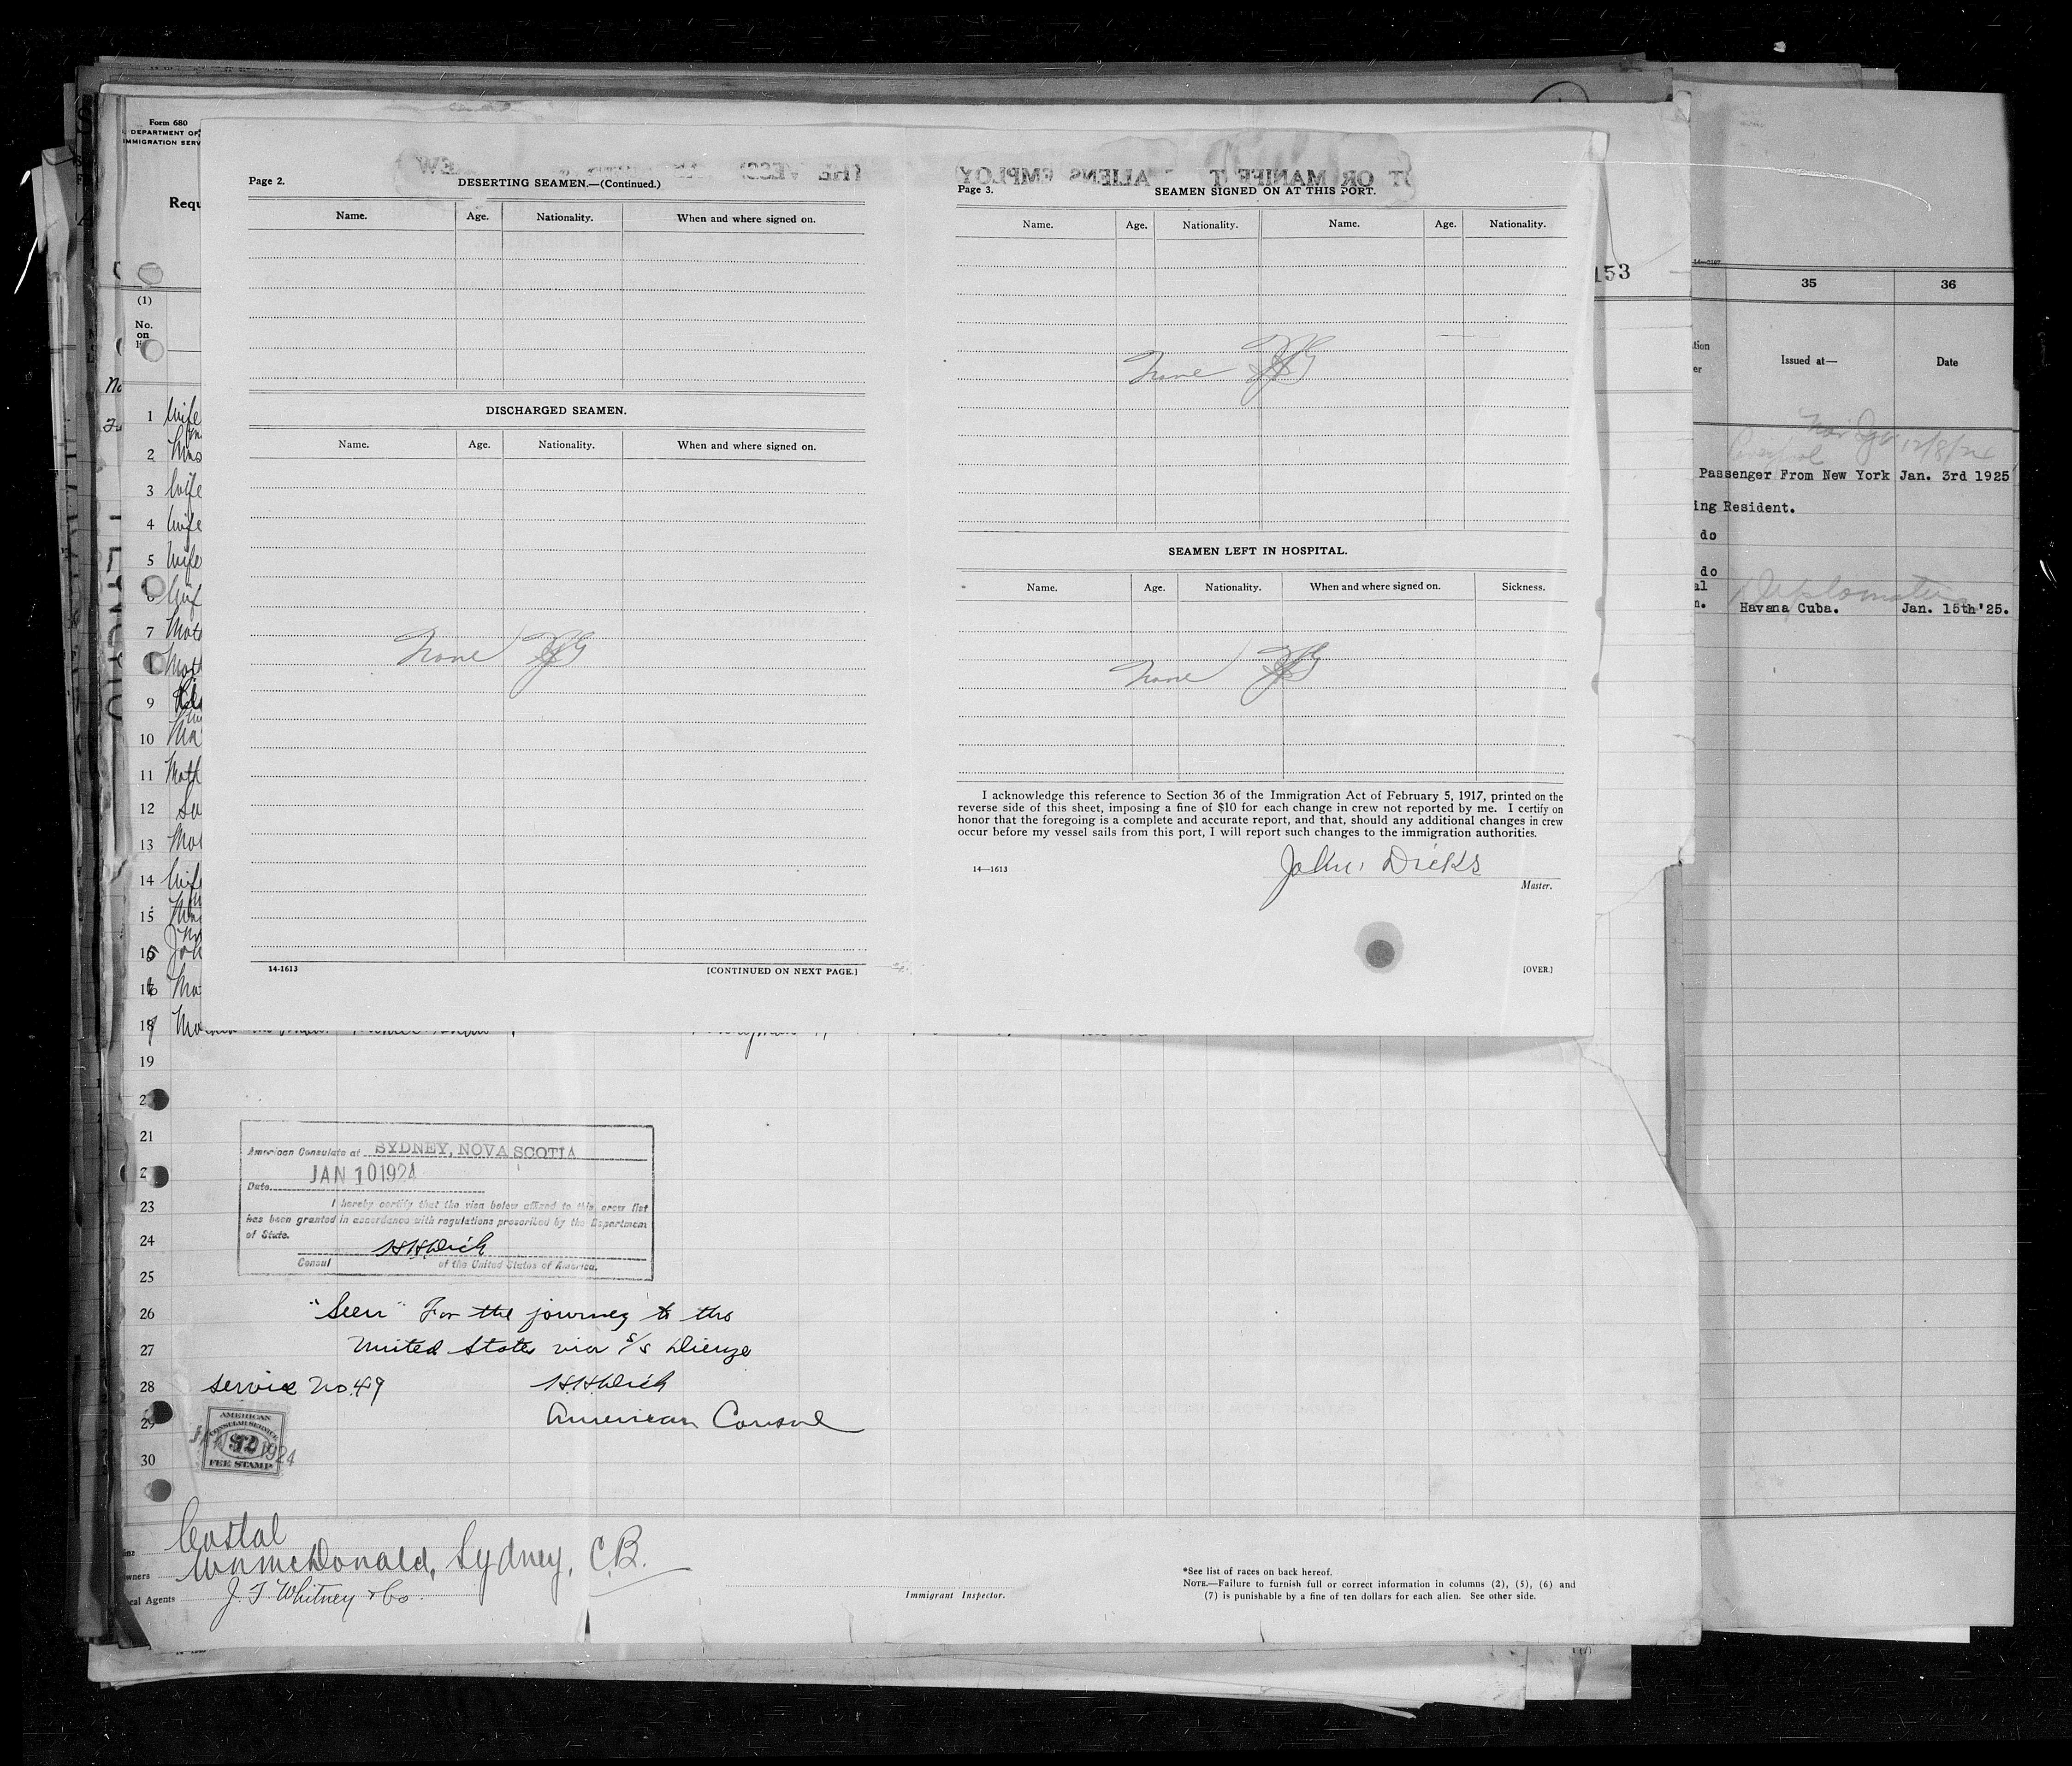 Form 680
DEPARTMENT OF
IMMIGRATION SERV
Requ
(1)
No.
on
Page 2.
DESERTING SEAMEN.—(Continued.)
Name. Age. Nationality. When and where signed on.
DISCHARGED SEAMEN.
Name. Age. Nationality. When and where signed on.
None
14-1613
[CONTINUED ON NEXT PAGE.]
Page 3.
SEAMEN SIGNED ON AT THIS PORT.
Name. Age. Nationality. Name. Age. Nationality.
None
SEAMEN LEFT IN HOSPITAL.
Name. Age. Nationality. When and where signed on. Sickness.
None
I acknowledge this reference to Section 36 of the Immigration Act of February 5, 1917, printed on the
reverse side of this sheet, imposing a fine of $10 for each change in crew not reported by me. I certify on
honor that the foregoing is a complete and accurate report, and that, should any additional changes in crew
occur before my vessel sails from this port, I will report such changes to the immigration authorities.
John Dicks
14—1613
Master.
[OVER.]
153
35 36
Issued at— Date
12/8/24
Passenger From New York Jan. 3rd 1925
ing Resident.
do
do
al
n. Havana Cuba. Jan. 15th'25.
1 Wife
2
3 Wife
4 Wife
5 Wife
7
9
10 Ma
11
12
13
14 Wife
15
18
19
21
23
24
25
26
27
28
29
30
American Consulate at SYDNEY, NOVA SCOTIA
Date JAN 10 1924
I hereby certify that the visa below affixed to this crew list
has been granted in accordance with regulations prescribed by the Department
of State.
H.H. Dick
Consul of the United States of America.
"Seen" For the journey to the
United States via s/s Dienze
Service No. 49 H.H. Dick
American Consul
AMERICAN
CONSULAR SERVICE
$2
JAN 10 1924
FEE STAMP
Costal
Wm McDonald, Sydney, C.B.
wners
cal Agents J. F. Whitney & Co.
Immigrant Inspector.
*See list of races on back hereof.
NOTE.—Failure to furnish full or correct information in columns (2), (5), (6) and
(7) is punishable by a fine of ten dollars for each alien. See other side.